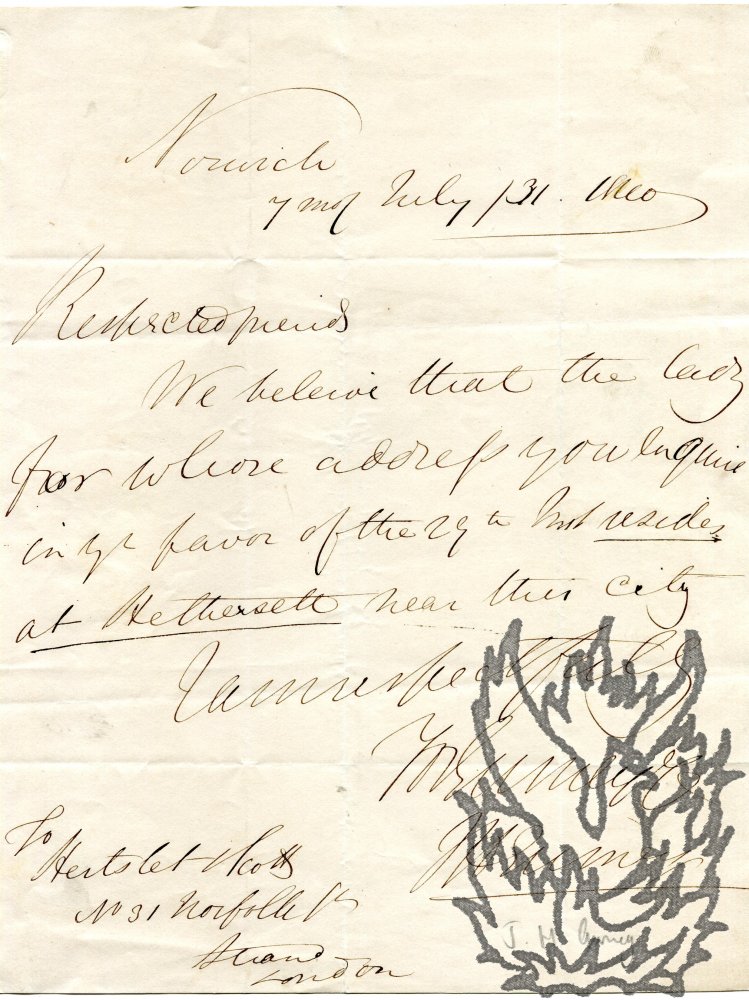 Norwich
7 mo/ July / 31. 1840
Respected friends
We beleive that the lady
for whose address you enquire
in yr favor of the 29th Inst resides
at Hethersett near this city
I am respectfully
To
Hertslet & Scott
No 31 Norfolk St
Strand
London
J. H.